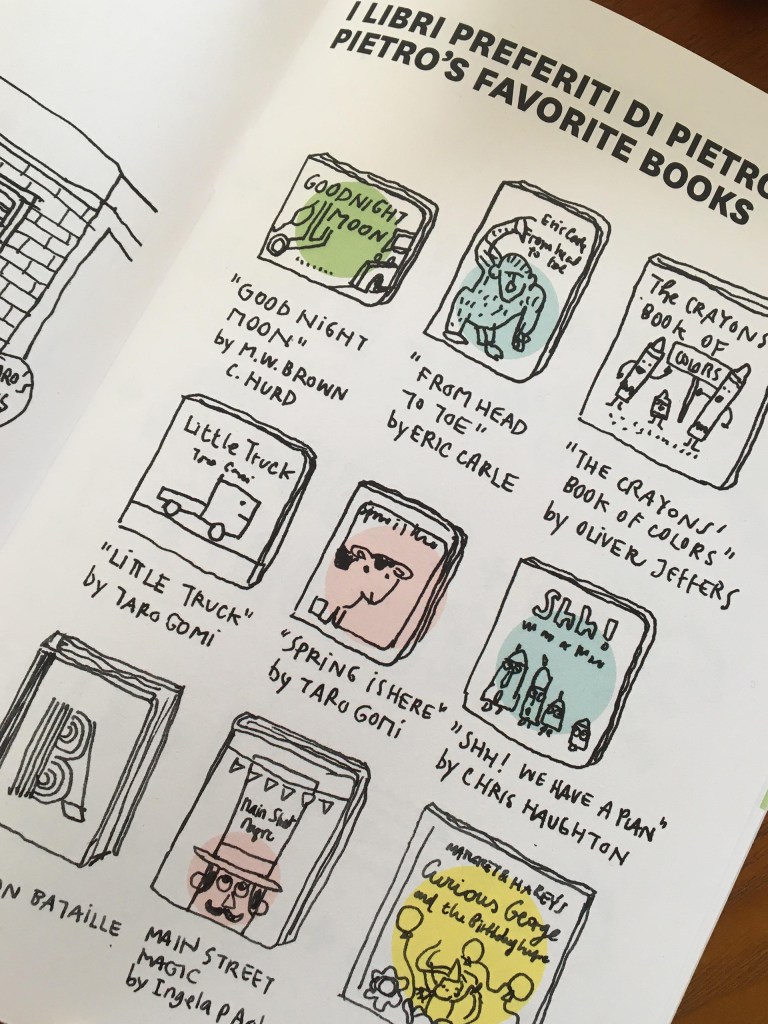 I LIBRI PREFERITI DI PIETRO
PIETRO'S FAVORITE BOOKS
GOODNIGHT
MOON
"GOOD NIGHT
MOON"
by M.W. BROWN
C. HURD
Eric Carle
From head
to toe
"FROM HEAD
TO TOE"
by ERIC CARLE
The CRAYONS'
BOOK OF
COLORS
"THE CRAYONS'
BOOK OF COLORS"
by OLIVER JEFFERS
Little Truck
Taro Gomi
"LITTLE TRUCK"
by TARO GOMI
"SPRING IS HERE"
by TARO GOMI
Shh!
"SHH! WE HAVE A PLAN"
by CHRIS HAUGHTON
ON BATAILLE
Main Street
Magic
MAIN STREET
MAGIC
by Ingela P
MARGRET & H.A. REY'S
Curious George
and the Birthday